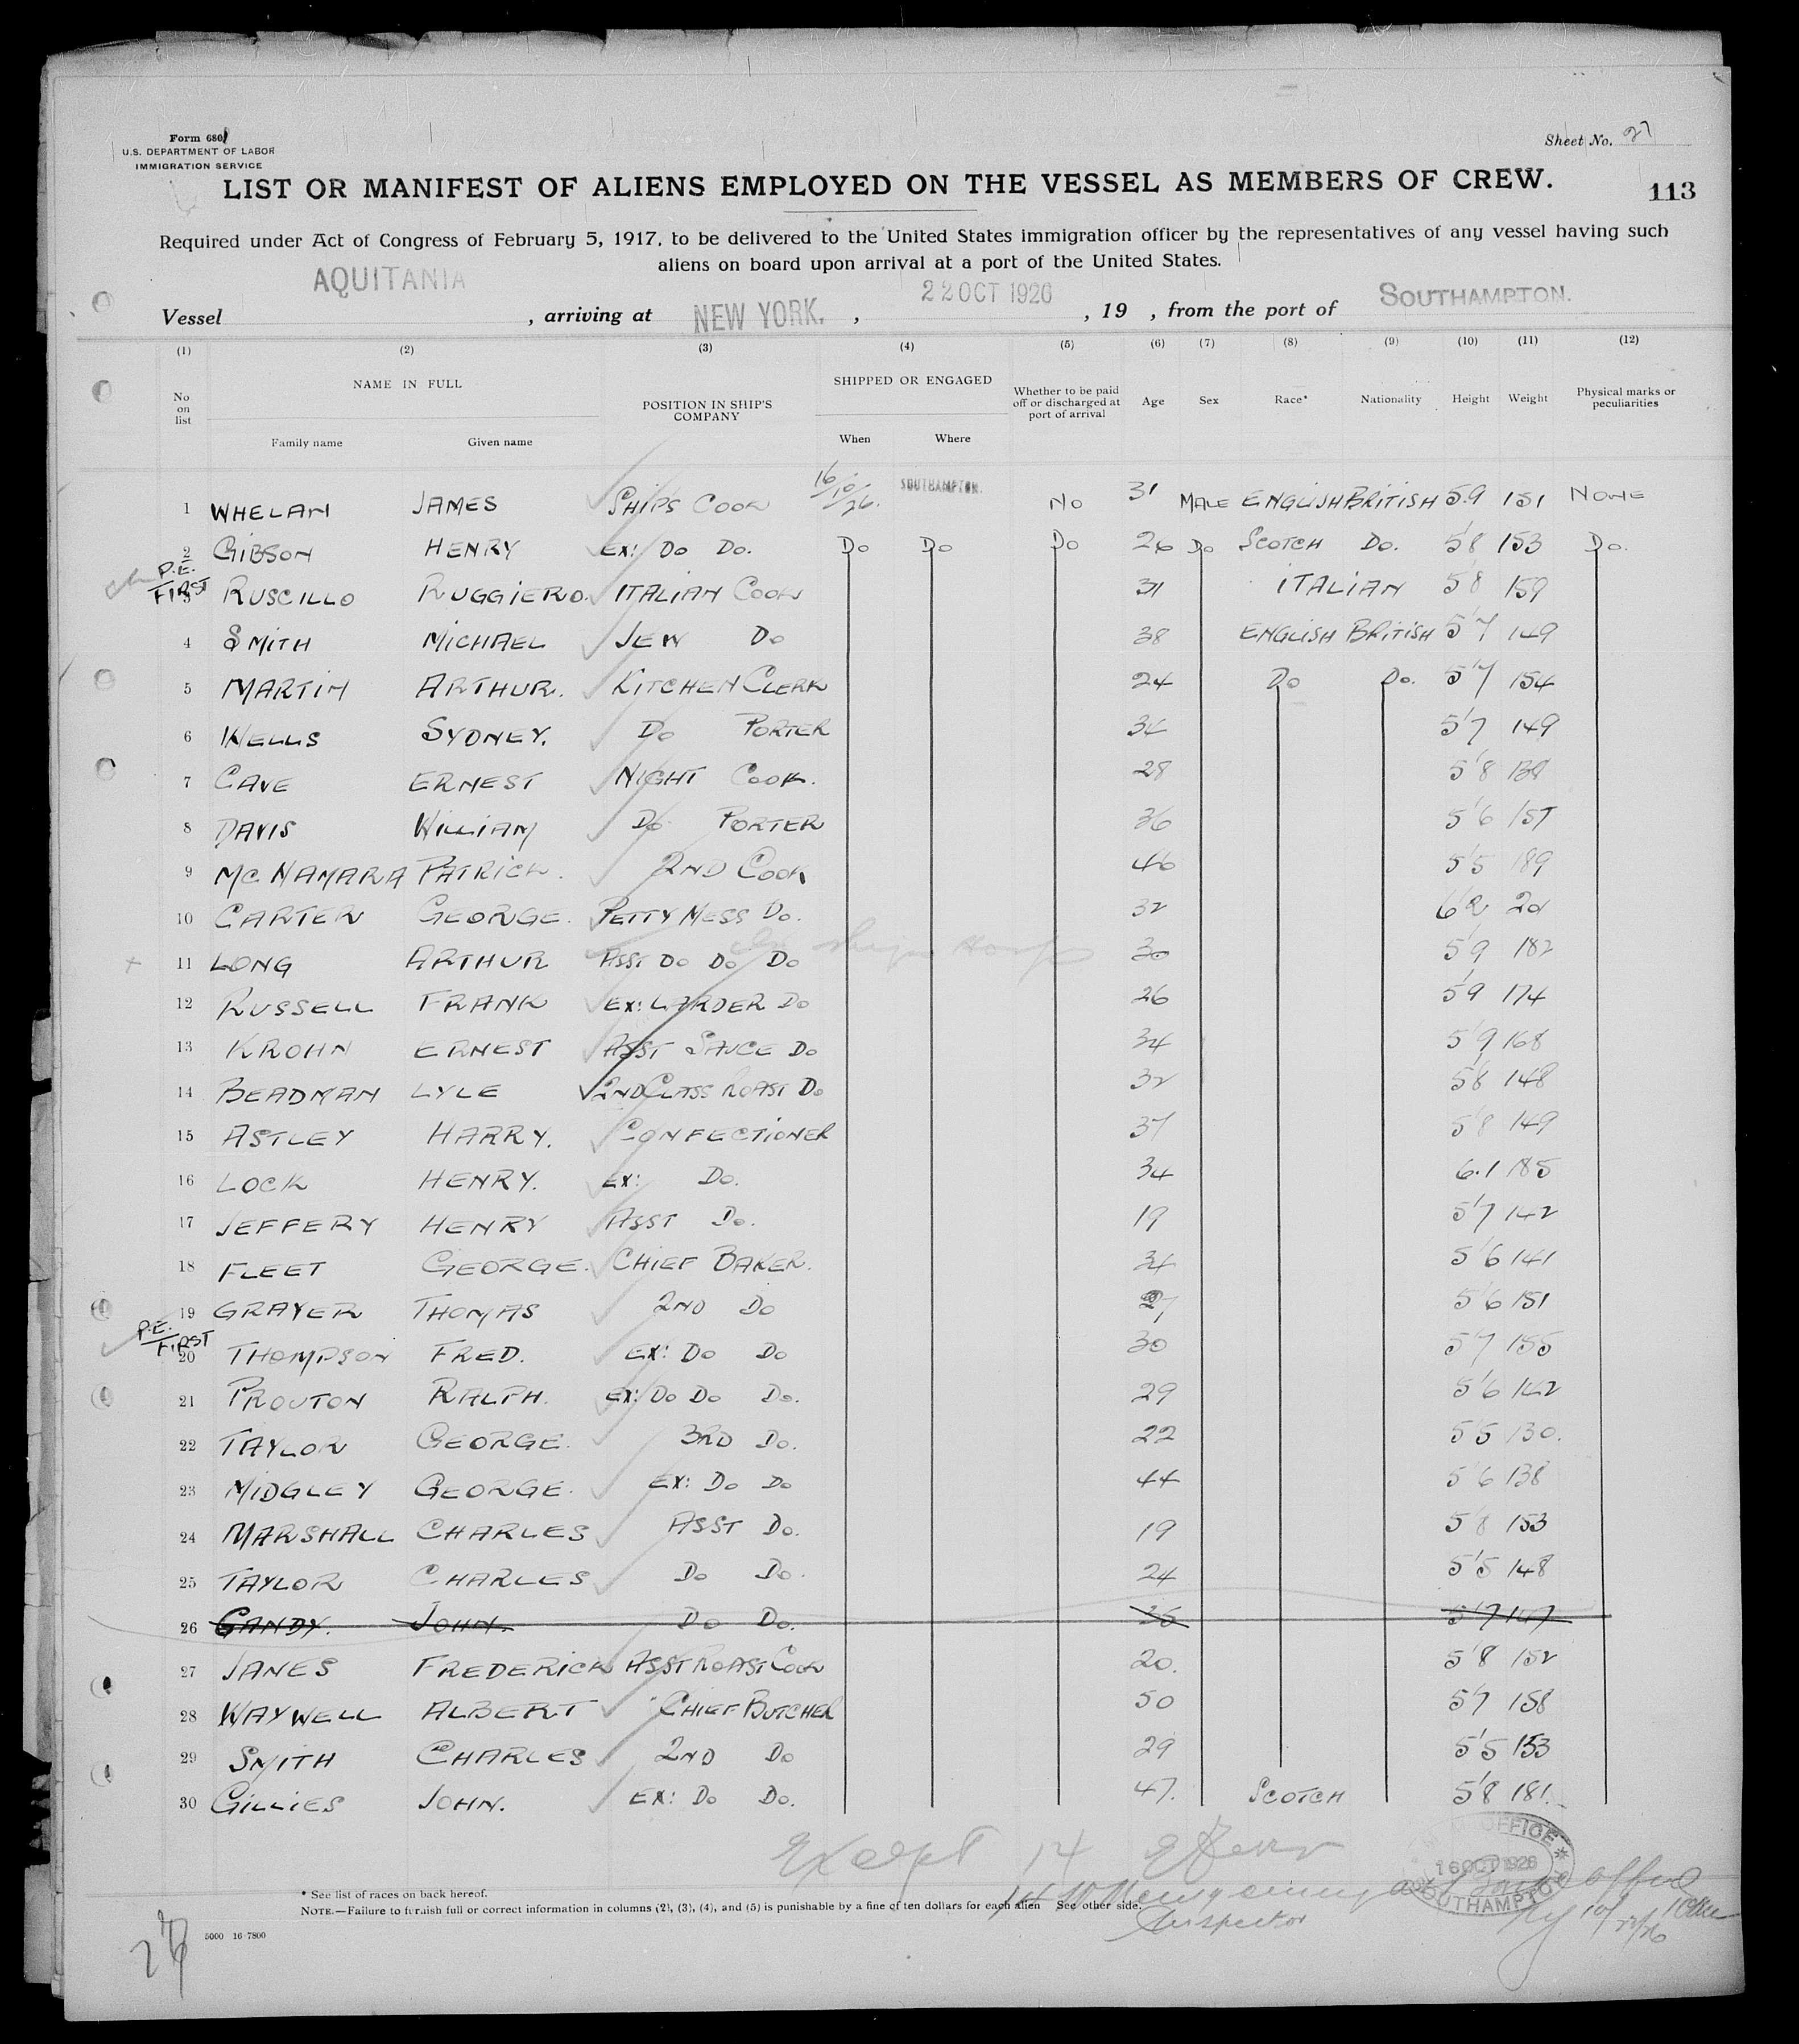 Form 680
U.S. DEPARTMENT OF LABOR
IMMIGRATION SERVICE
Sheet No. 27
LIST OR MANIFEST OF ALIENS EMPLOYED ON THE VESSEL AS MEMBERS OF CREW.
113
Required under Act of Congress of February 5, 1917, to be delivered to the United States immigration officer by the representatives of any vessel having such
aliens on board upon arrival at a port of the United States.
Vessel AQUITANIA, arriving at NEW YORK., 22 OCT 1926, 19 , from the port of SOUTHAMPTON.
(1) (2) (3) (4) (5) (6) (7) (8) (9) (10) (11) (12)
No on list NAME IN FULL POSITION IN SHIP'S COMPANY SHIPPED OR ENGAGED Whether to be paid off or discharged at port of arrival Age Sex Race* Nationality Height Weight Physical marks or peculiarities
Family name Given name When Where
1 WHELAN JAMES SHIPS COOK 16/10/26. SOUTHAMPTON. NO 31 MALE ENGLISH BRITISH 5.9 151 NONE
2 GIBSON HENRY EX: DO DO. DO DO DO 26 DO SCOTCH DO. 5'8 153 DO.
P.E. FIRST
3 RUSCILLO RUGGIERO. ITALIAN COOK 31 ITALIAN 5'8 159
4 SMITH MICHAEL JEW DO 38 ENGLISH BRITISH 5'7 149
5 MARTIN ARTHUR. KITCHEN CLERK 24 DO DO. 5'7 154
6 WELLS SYDNEY. DO PORTER 34 5'7 149
7 CAVE ERNEST NIGHT COOK. 28 5'8 138
8 DAVIS WILLIAM DO PORTER 36 5'6 157
9 MC NAMARA PATRICK. 2ND COOK 46 5'5 189
10 CARTER GEORGE. PETTY MESS DO. 32 6'2 201
11 LONG ARTHUR ASST DO DO DO 30 5'9 182
12 RUSSELL FRANK EX: LARDER DO 26 5'9 174
13 KROHN ERNEST ASST SAUCE DO 34 5'9 168
14 BEADMAN LYLE 2ND CLASS ROAST DO 32 5'8 148
15 ASTLEY HARRY. CONFECTIONER 37 5'8 149
16 LOCK HENRY. EX: DO. 34 6.1 185
17 JEFFERY HENRY ASST DO. 19 5'7 142
18 FLEET GEORGE. CHIEF BAKER. 34 5'6 141
19 GRAYER THOMAS 2ND DO 27 5'6 151
P.E. FIRST
20 THOMPSON FRED. EX: DO DO 30 5'7 155
21 PROUTON RALPH. EX: DO DO DO. 29 5'6 142
22 TAYLOR GEORGE. 3RD DO. 22 5'5 130.
23 MIDGLEY GEORGE. EX: DO DO 44 5'6 138
24 MARSHALL CHARLES ASST DO. 19 5'8 153
25 TAYLOR CHARLES DO DO. 24 5'5 148
26 GANDY. JOHN. DO DO. 5'7 147
27 JANES FREDERICK ASST ROAST COOK 20. 5'8 152
28 WAYWELL ALBERT CHIEF BUTCHER 50 5'7 158
29 SMITH CHARLES 2ND DO 29 5'5 153
30 GILLIES JOHN. EX: DO DO. 47. SCOTCH 5'8 181.
Except 14
OFFICE
16 OCT 1926
SOUTHAMPTON
* See list of races on back hereof.
NOTE.—Failure to furnish full or correct information in columns (2), (3), (4), and (5) is punishable by a fine of ten dollars for each alien See other side.
Inspector
5000 16-7800